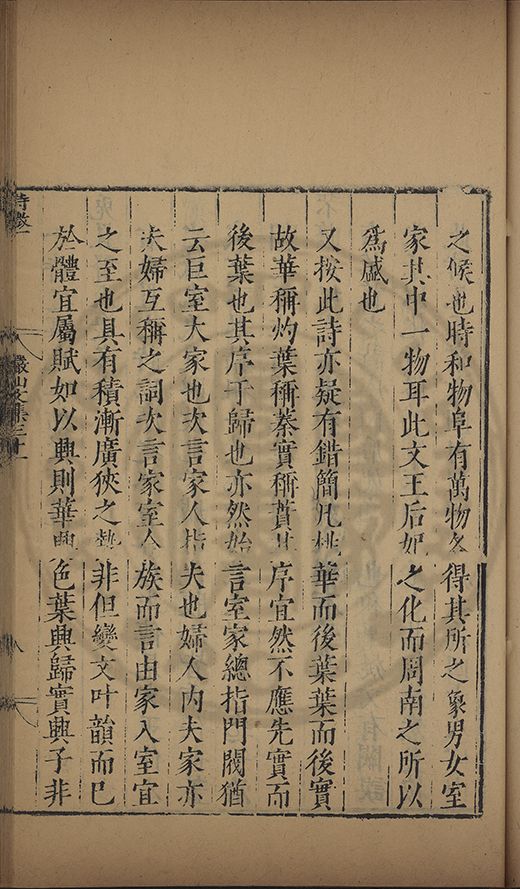 之候也時和物阜有萬物各得其所之象男女室
家其中一物耳此文王后妃之化而周南之所以
爲盛也
又按此詩亦疑有錯簡凡桃華而後葉葉而後實
故華稱灼葉稱蓁實稱蕡其序宜然不應先實而
後葉也其序于歸也亦然始言室家總指門閥猶
云巨室大家也次言家人指夫也婦人內夫家亦
夫婦互稱之詞次言家室合族而言由家入室宜
之至也具有積漸廣狹之勢非但變文叶韻而巳
於體宜屬賦如以興則華興色葉興歸實興子非
詩微一
儼山文集三十一